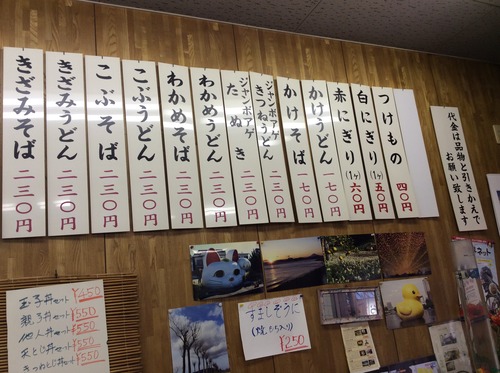 代金は品物と引きかえで
お願い致します
つけもの 四〇円
白にぎり(1ヶ) 五〇円
赤にぎり(1ヶ) 六〇円
かけうどん 一七〇円
かけそば 一七〇円
ジャンボアゲ
きつねうどん 二三〇円
ジャンボアゲ
たぬき 二三〇円
わかめうどん 二三〇円
わかめそば 二三〇円
こぶうどん 二三〇円
こぶそば 二三〇円
きざみうどん 二三〇円
きざみそば 二三〇円
玉子丼セット ¥450
親子丼セット ¥550
他人丼セット ¥550
天とじ丼セット ¥550
きつねとじ丼セット ¥550
すましぞうに
¥250